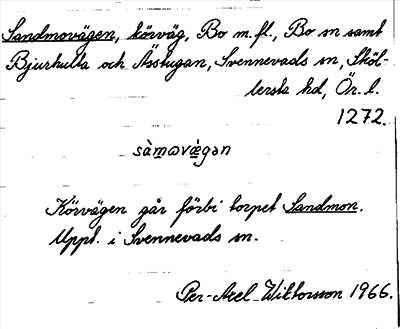 Sandmovägen, körväg, Bo m.fl., Bo sn samt
Bjurhulta och Åsstugan, Svennevads sn, Sköl-
lersta hd, Ör. l.
1272.
sàmωvǽgən
Körvägen går förbi torpet Sandmon.
Uppt. i Svennevads sn.
Per-Axel Wiktorsson 1966.